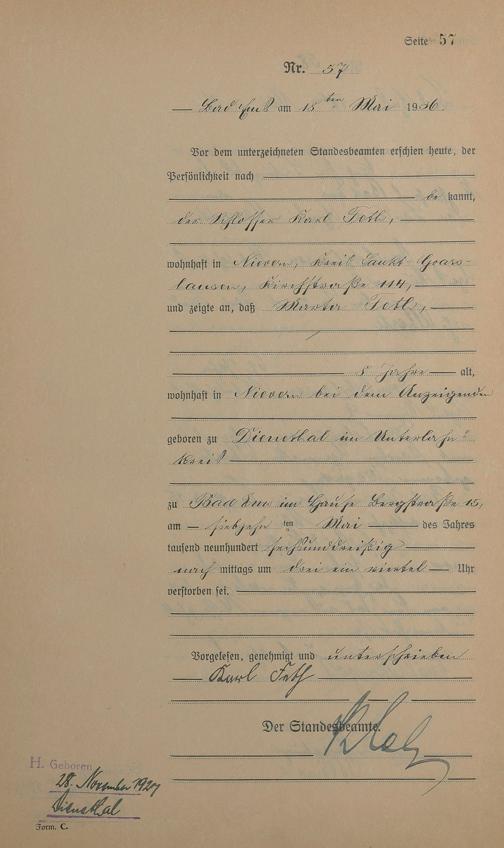 Seite 57
Nr. 57
Bad Ems am 18 ten Mai 1936.
Vor dem unterzeichneten Standesbeamten erschien heute, der
Persönlichkeit nach
be kannt,
der Schlosser Karl
wohnhaft in Nievern, Kreis Sankt-Goars-
hausen, Kirchstraße 114,
und zeigte an, daß
8 Jahre alt,
wohnhaft in Nievern bei dem Anzeigenden
geboren zu Dienethal im Unterlahn-
kreis
zu Bad Ems im Hause Bergstraße 15,
am ten Mai des Jahres
tausend neunhundert sechsunddreißig
nach mittags um drei ein viertel Uhr
verstorben sei.
Vorgelesen, genehmigt und unterschrieben
Karl
Der Standesbeamte.
H. Geboren
28. November 1927
Dienethal
Form. C.